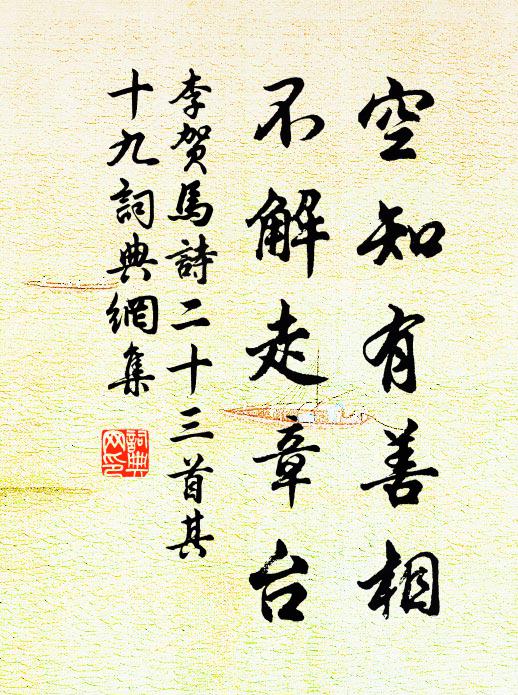 空知有善相
不解走章台
李贺馬詩二十三首其
十九詞典網集
詞典
网印